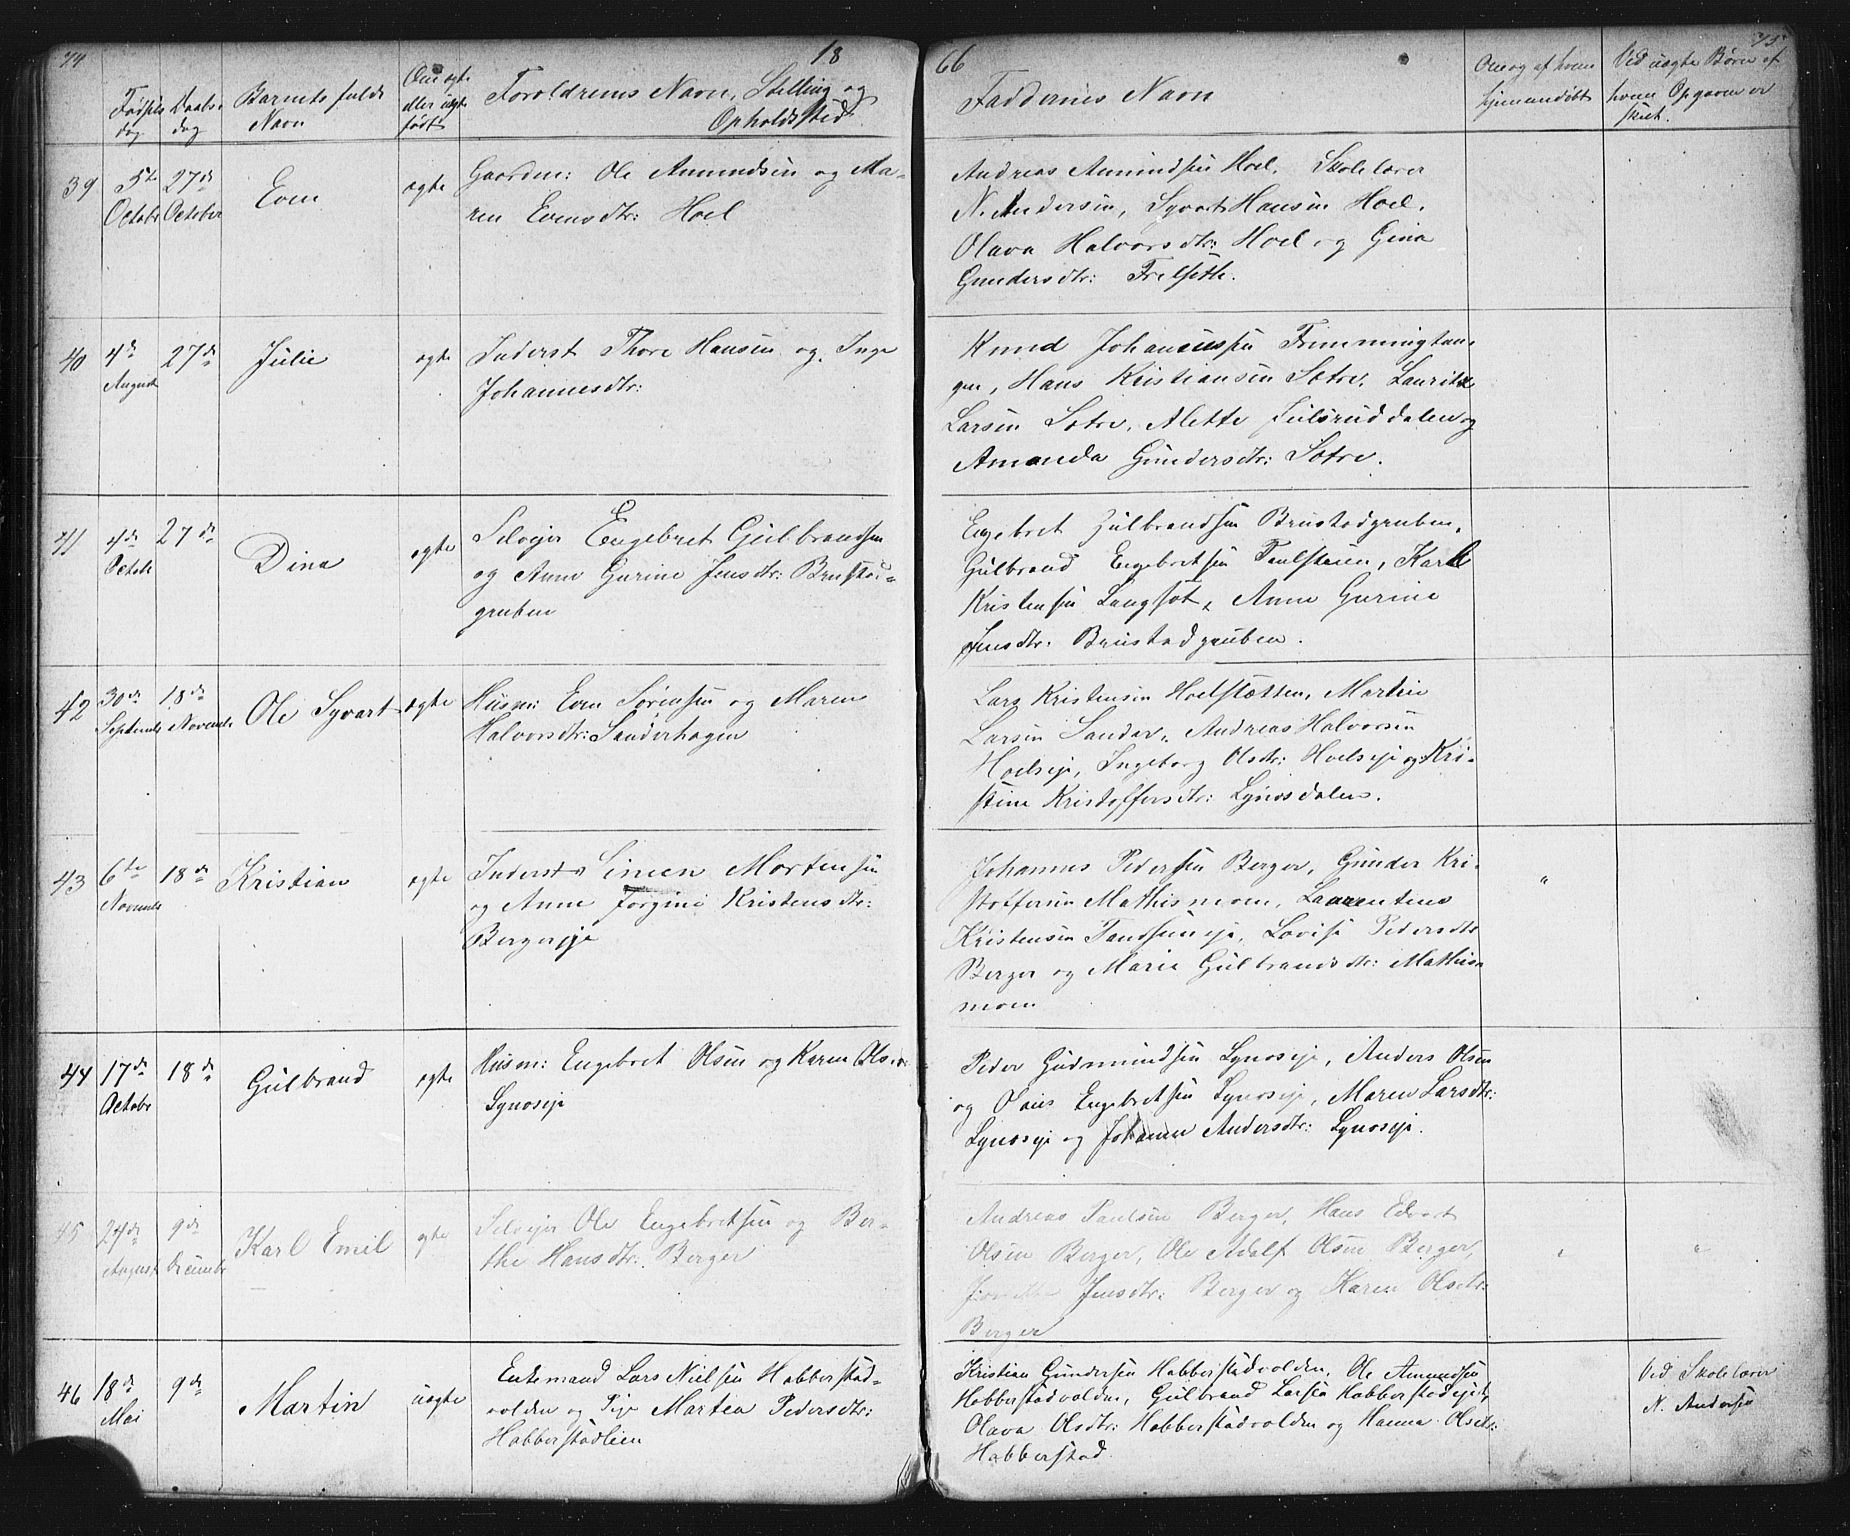 74
18
66
75
Fødsels
dag
Daabs-
dag
Barnets fulde
Navn
Om ægte
eller uægte
født
Forældrenes Navn, Stilling og
Opholdssted
Faddernes Navn
Om og af hvem
hjemmedøbt
Ved uægte Børn af
hvem Opgaven er
skeet.
39 5te October 27de October Even ægte Gaardm: Ole Amundsen og Ma-
ren Evensdtr: Hoel
Andreas Amundsen Hoel. Skolelærer
N. Andersen, Syvert Hansen Hoel,
Olava Halvorsdtr: Hoel og Gina
Gundersdtr: Frelsethe.
40 4de August 27de Julie ægte Inderst Thore Hansen og Inge
Johannesdtr:
Knud Johannessen
gen, Hans Kristiansen Sætre, Lauritz
Larsen Sætre, Alette Julsruddalen og
Amanda Gundersdtr: Sætre.
41 4de Octob 27de Dina ægte Selvejer Engebret Gulbrandsen
og Anne Gurine Jensdtr: Brustad-
gruben
Engebret Gulbrandsen Brustadgruben,
Gulbrand Engebretsen Paulstuen, Karl
Kristensen Langset, Anne Gurine
Jensdtr: Brustadgruben.
42 30de Septemb 18de Novemb Ole Syvart ægte Husm: Even Sørensen og Maren
Halvorsdtr: Sanderhagen
Lars Kristensen Hoelstætten, Martin
Larsen Sander, Andreas Halvorsen
Hoelseje, Ingeborg Olsdtr: Hoelseje og Kri-
stine Kristoffersdtr: Lynosdalen.
43 6te Novemb 18de Kristian ægte Inderst Simen Mortensen
og Anne Jørgine Kristensdtr:
Bergereje
Johannes Pedersen Berger, Gunder Kri-
stoffersen Mathismoen, Laurentius
Kristensen Tandseneje, Lovise Pedersdtr
Berger og Marie Gulbrandsdtr: Mathis-
moen
"
44 17de Octobr 18de Gulbrand ægte Husm: Engebret Olsen og Karen Olsdtr:
Lynoseje
Peder Gudmundsen Lynoseje, Anders Olsen
og Olaus Engebretsen Lynoseje, Maren Larsdtr:
Lynoseje og Johanne Andersdtr: Lynoseje.
45 24de August 9de Decembr Karl Emil ægte Selvejer Ole Engebretsen og Ber-
the Hansdtr: Berger
Andreas Paulsen Berger, Hans Edvart
Olsen Berger, Ole Adolf Olsen Berger,
Jensdtr: Berger og Karen Olsdtr:
Berger
" "
46 18de Mai 9de Martin uægte Enkemand Lars Nielsen Habberstad-
volden og Pige Martea Pedersdtr:
Habberstadlien
Kristian Gundersen Habberstadvolden, Ole Amundsen
Habberstadvolden, Gulbrand Larsen Habberstadeje,
Olava Olsdtr: Habberstadvolden og Hanna Olsdtr:
Habberstad.
Ved Skolelærer
N. Andersen